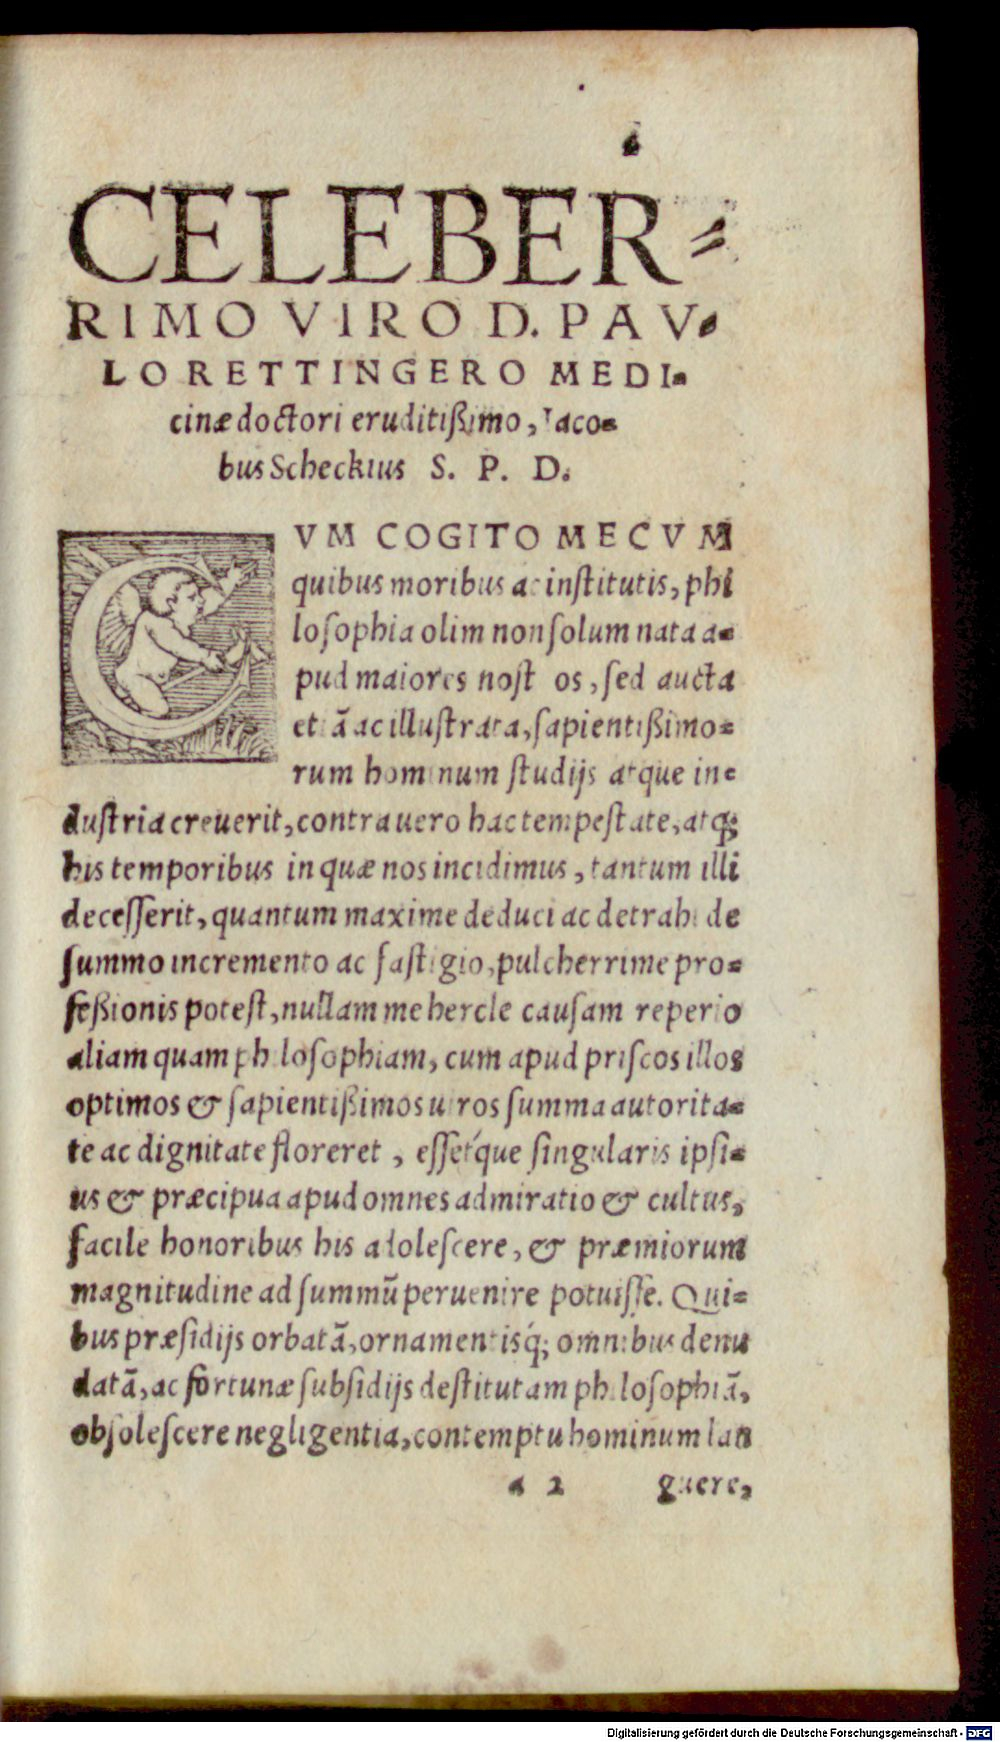 CELEBER-
RIMO VIRO D. PAV-
LO RETTINGERO MEDI-
cinæ doctori eruditißimo, Iaco-
bus Scheckius S. P. D.
CVM COGITO MECVM
quibus moribus ac institutis, phi
losophia olim non solum nata a-
pud maiores nostros, sed aucta
etiã ac illustrata, sapientißimo-
rum hominum studijs atque in-
dustria creuerit, contra uero hac tempestate, atq;
his temporibus in quæ nos incidimus, tantum illi
decesserit, quantum maxime deduci ac detrahi de
summo incremento ac fastigio, pulcherrime pro-
feßionis potest, nullam me hercle causam reperio
aliam quam philosophiam, cum apud priscos illos
optimos & sapientißimos uiros summa autorita-
te ac dignitate floreret, essét que singularis ipsi-
us & præcipua apud omnes admiratio & cultus,
facile honoribus his adolescere, & præmiorum
magnitudine ad summũ peruenire potuisse. Qui-
bus præsidijs orbatã, ornamentisq́; omnibus denu
datã, ac fortunæ subsidijs destitutam philosophiã,
obsolescere negligentia, contemptu hominum lan
a 2 guere,
Digitalisierung gefördert durch die Deutsche Forschungsgemeinschaft - DFG